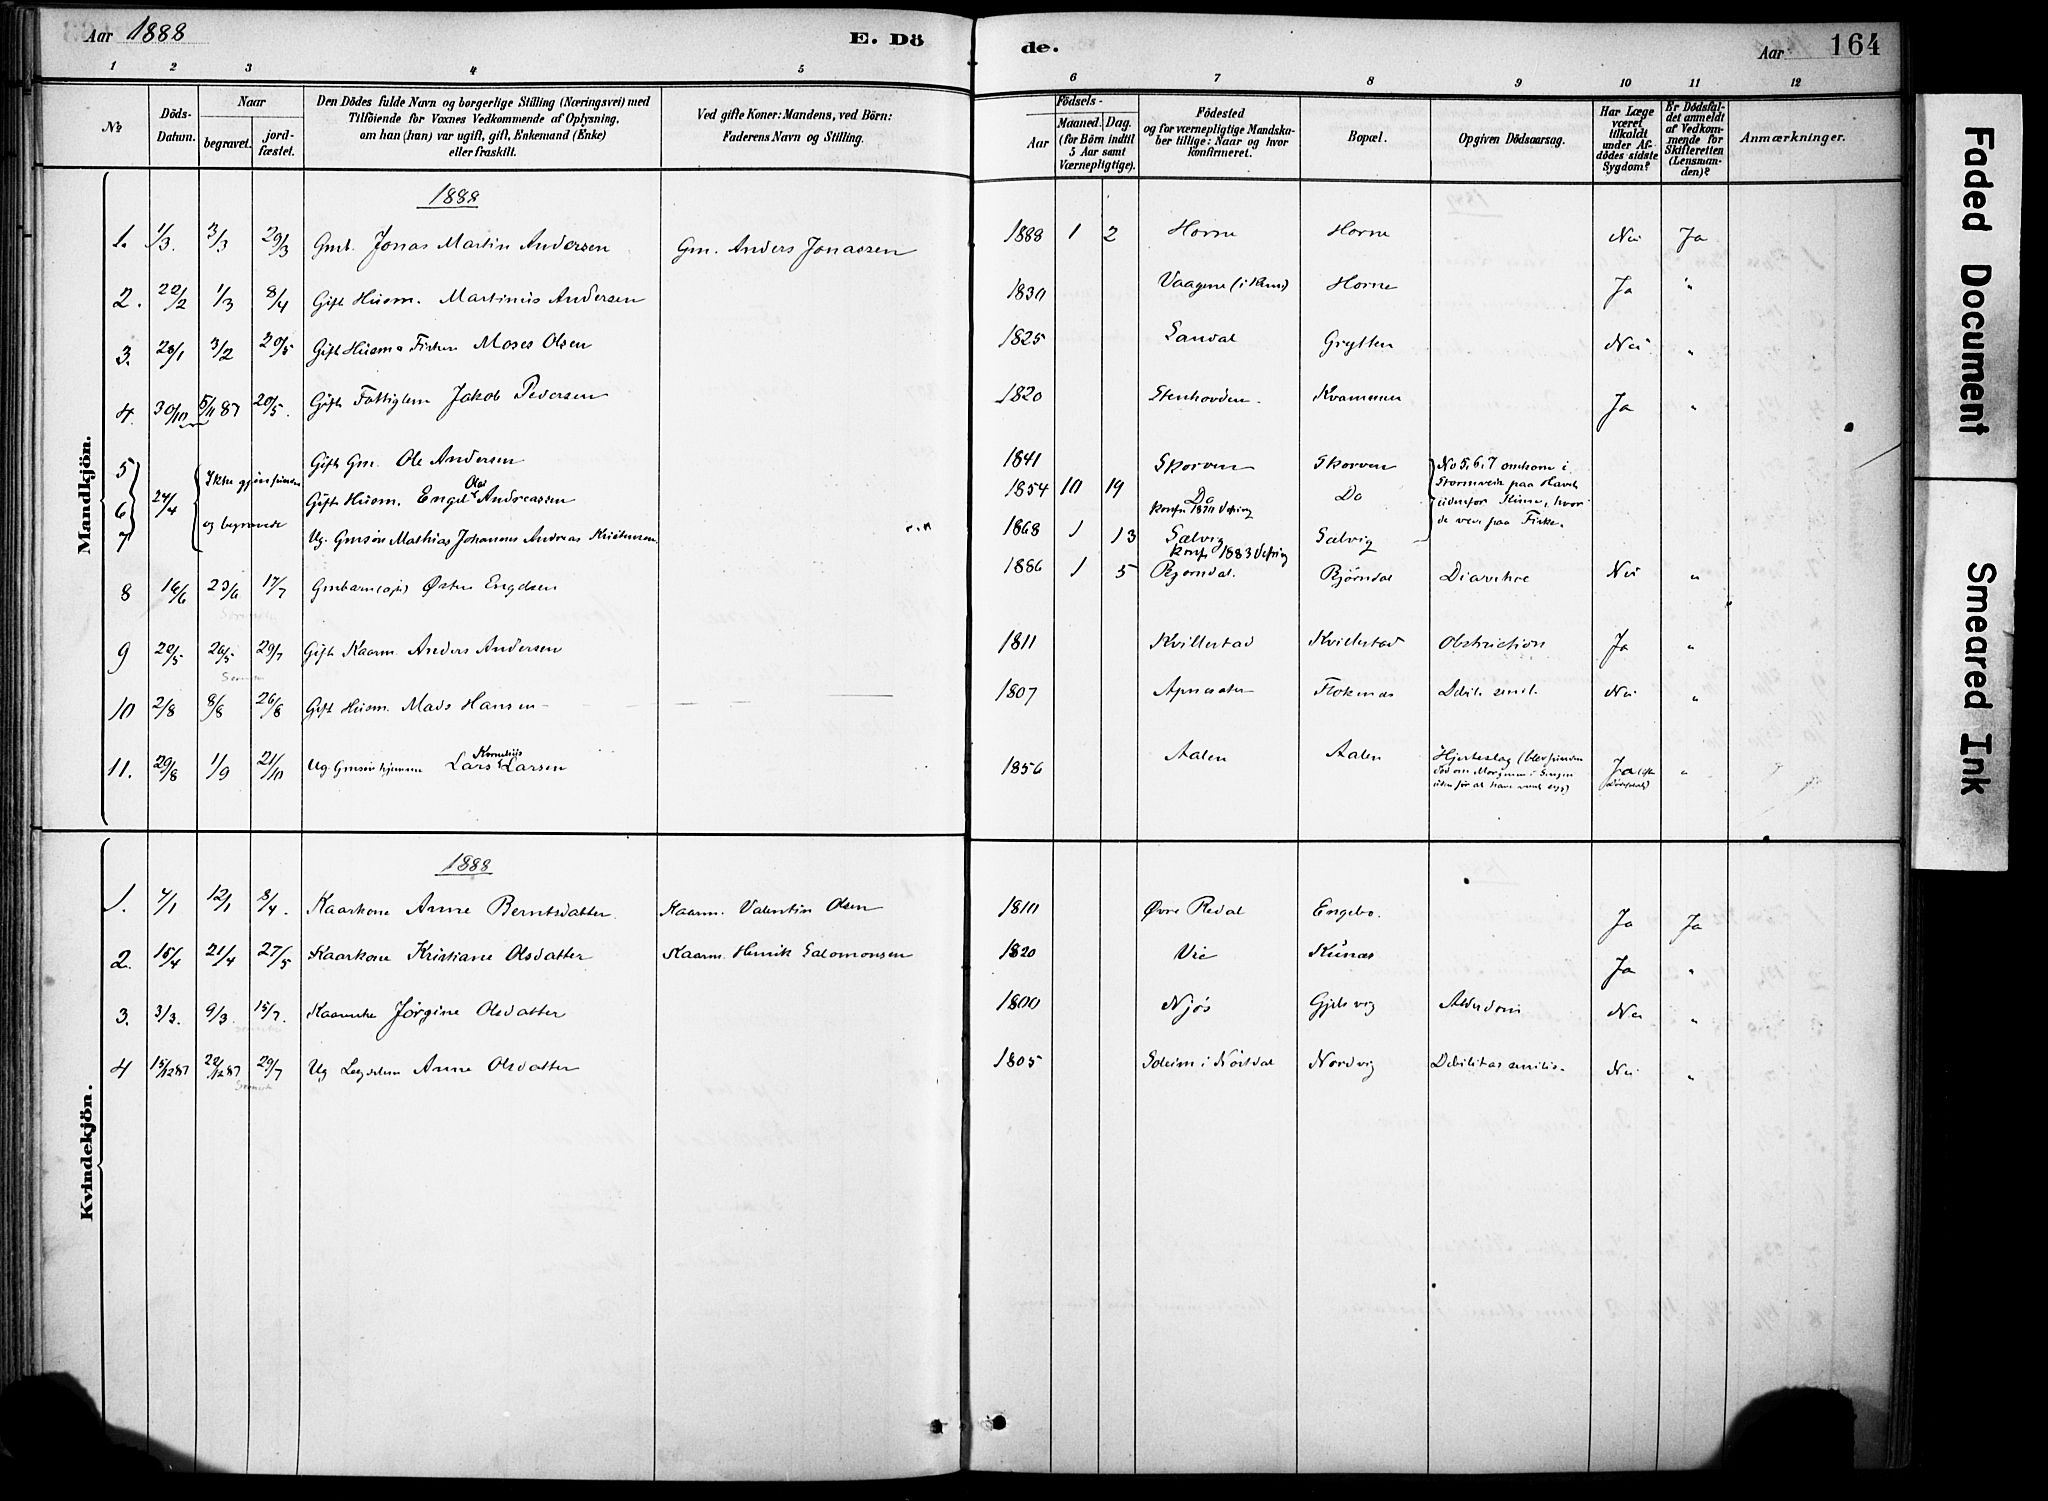 Aar 1888 E. Dö de. Aar 164
1 2 3 4 5 6 7 8 9 10 11 12
No
Döds-Datum.
Naar
begravet.
jord-fæstet.
Den Dödes fulde Navn og borgerlige Stilling (Næringsvei) med
Tilföiende for Voxnes Vedkommende af Oplysning,
om han (hun) var ugift, gift, Enkemand (Enke)
eller fraskilt.
Ved gifte Koner: Mandens, ved Börn:
Faderens Navn og Stilling.
Födsels-
Aar
Maaned. Dag.
(for Börn indtil
5 Aar samt
Værnepligtige).
Födested
og for værnepligtige Mandska-
ber tillige: Naar og hvor
konfirmeret.
Bopæl.
Opgiven Dödsaarsag.
Har Læge
været
tilkaldt
under Af-
dödes sidste
Sygdom?
Er Dödsfal-
det anmeldt
af Vedkom-
mende for
Skifteretten
(Lensman-
den)?
Anmærkninger.
Mandkjön.
1888
1. 1/3. 3/3 29/3 Gmb. Jonas Martin Andersen Gm. Anders Jonassen 1888 1 2 Horne Horne Nei Ja
2. 22/2 1/3 8/4 Gift Husm. Martinus Andersen 1830 Vaagene (i Kinn) Horne Ja "
3. 28/1 3/2 20/5 Gift Husm Fisker Moses Olsen 1825 Sandal Grytten Nei "
4. 30/10 5/11 87 20/5. Gift Fattiglem Jakob Pedersen 1820 Stenhovden. Kvammen Ja "
5 Gift Gm. Ole Andersen 1841 Skorven Skorven No 5, 6, 7 omkom i
6 24/4 Ikke gjenfundne Gift Husm. Engel Olai Andreassen 1854 10 19 Do Do Stormveir paa Havet
konfr 1870 Vefring udenfor Kinn, hvor
7 og begravede Ug. Gmsøn Mathias Johannes Andreas Kristensen 1868 1 13 Sælvig Sælvig de vare paa Fiske.
konfr 1883 Vefring
8 16/6 23/6 17/7 Gmbarn Østen Engelsen 1886 1 5 Bjørndal. Bjørndal Diarrhoe Nei "
9 22/5 26/5 29/7 Gift Kaarm. Anders Andersen 1811 Kvillestad Kvillestad Obstruction Ja "
10 2/8 8/8 26/8 Gift Husm. Mads Hansen 1807 Apnesæter Flokenæs Debil. senil. Nei "
11. 29/8 1/9 21/10 Ug Gmsøn hjemme Lars Kornelius Larsen 1856 Aalen Aalen Hjerteslag (blev funden
død om Morgenen i Sengen
uden før at have været syg) Ja "
Kvindekjön.
1888
1. 4/1 12/1 8/4. Kaarkone Anne Berntsdatter Kaarm. Valentin Olsen 1810 Øvre Redal Engebø. Ja Ja
2. 15/4 21/4 27/5 Kaarkone Kristiane Olsdatter Kaarm. Henrik Salomonsen 1820 Vie Kunæs Ja "
3. 3/3. 9/3. 15/7. Kaarenke Jørgine Olsdatter 1800 Njøs Gjelsvig Alderdom Nei "
4 15/12 87 22/12 87 29/7 Ug Lægdslem Anne Olsdatter 1805 Soleim i Nøstdal Nordvig Debilitas senilis. Nei "
Faded Document
Smeared Ink